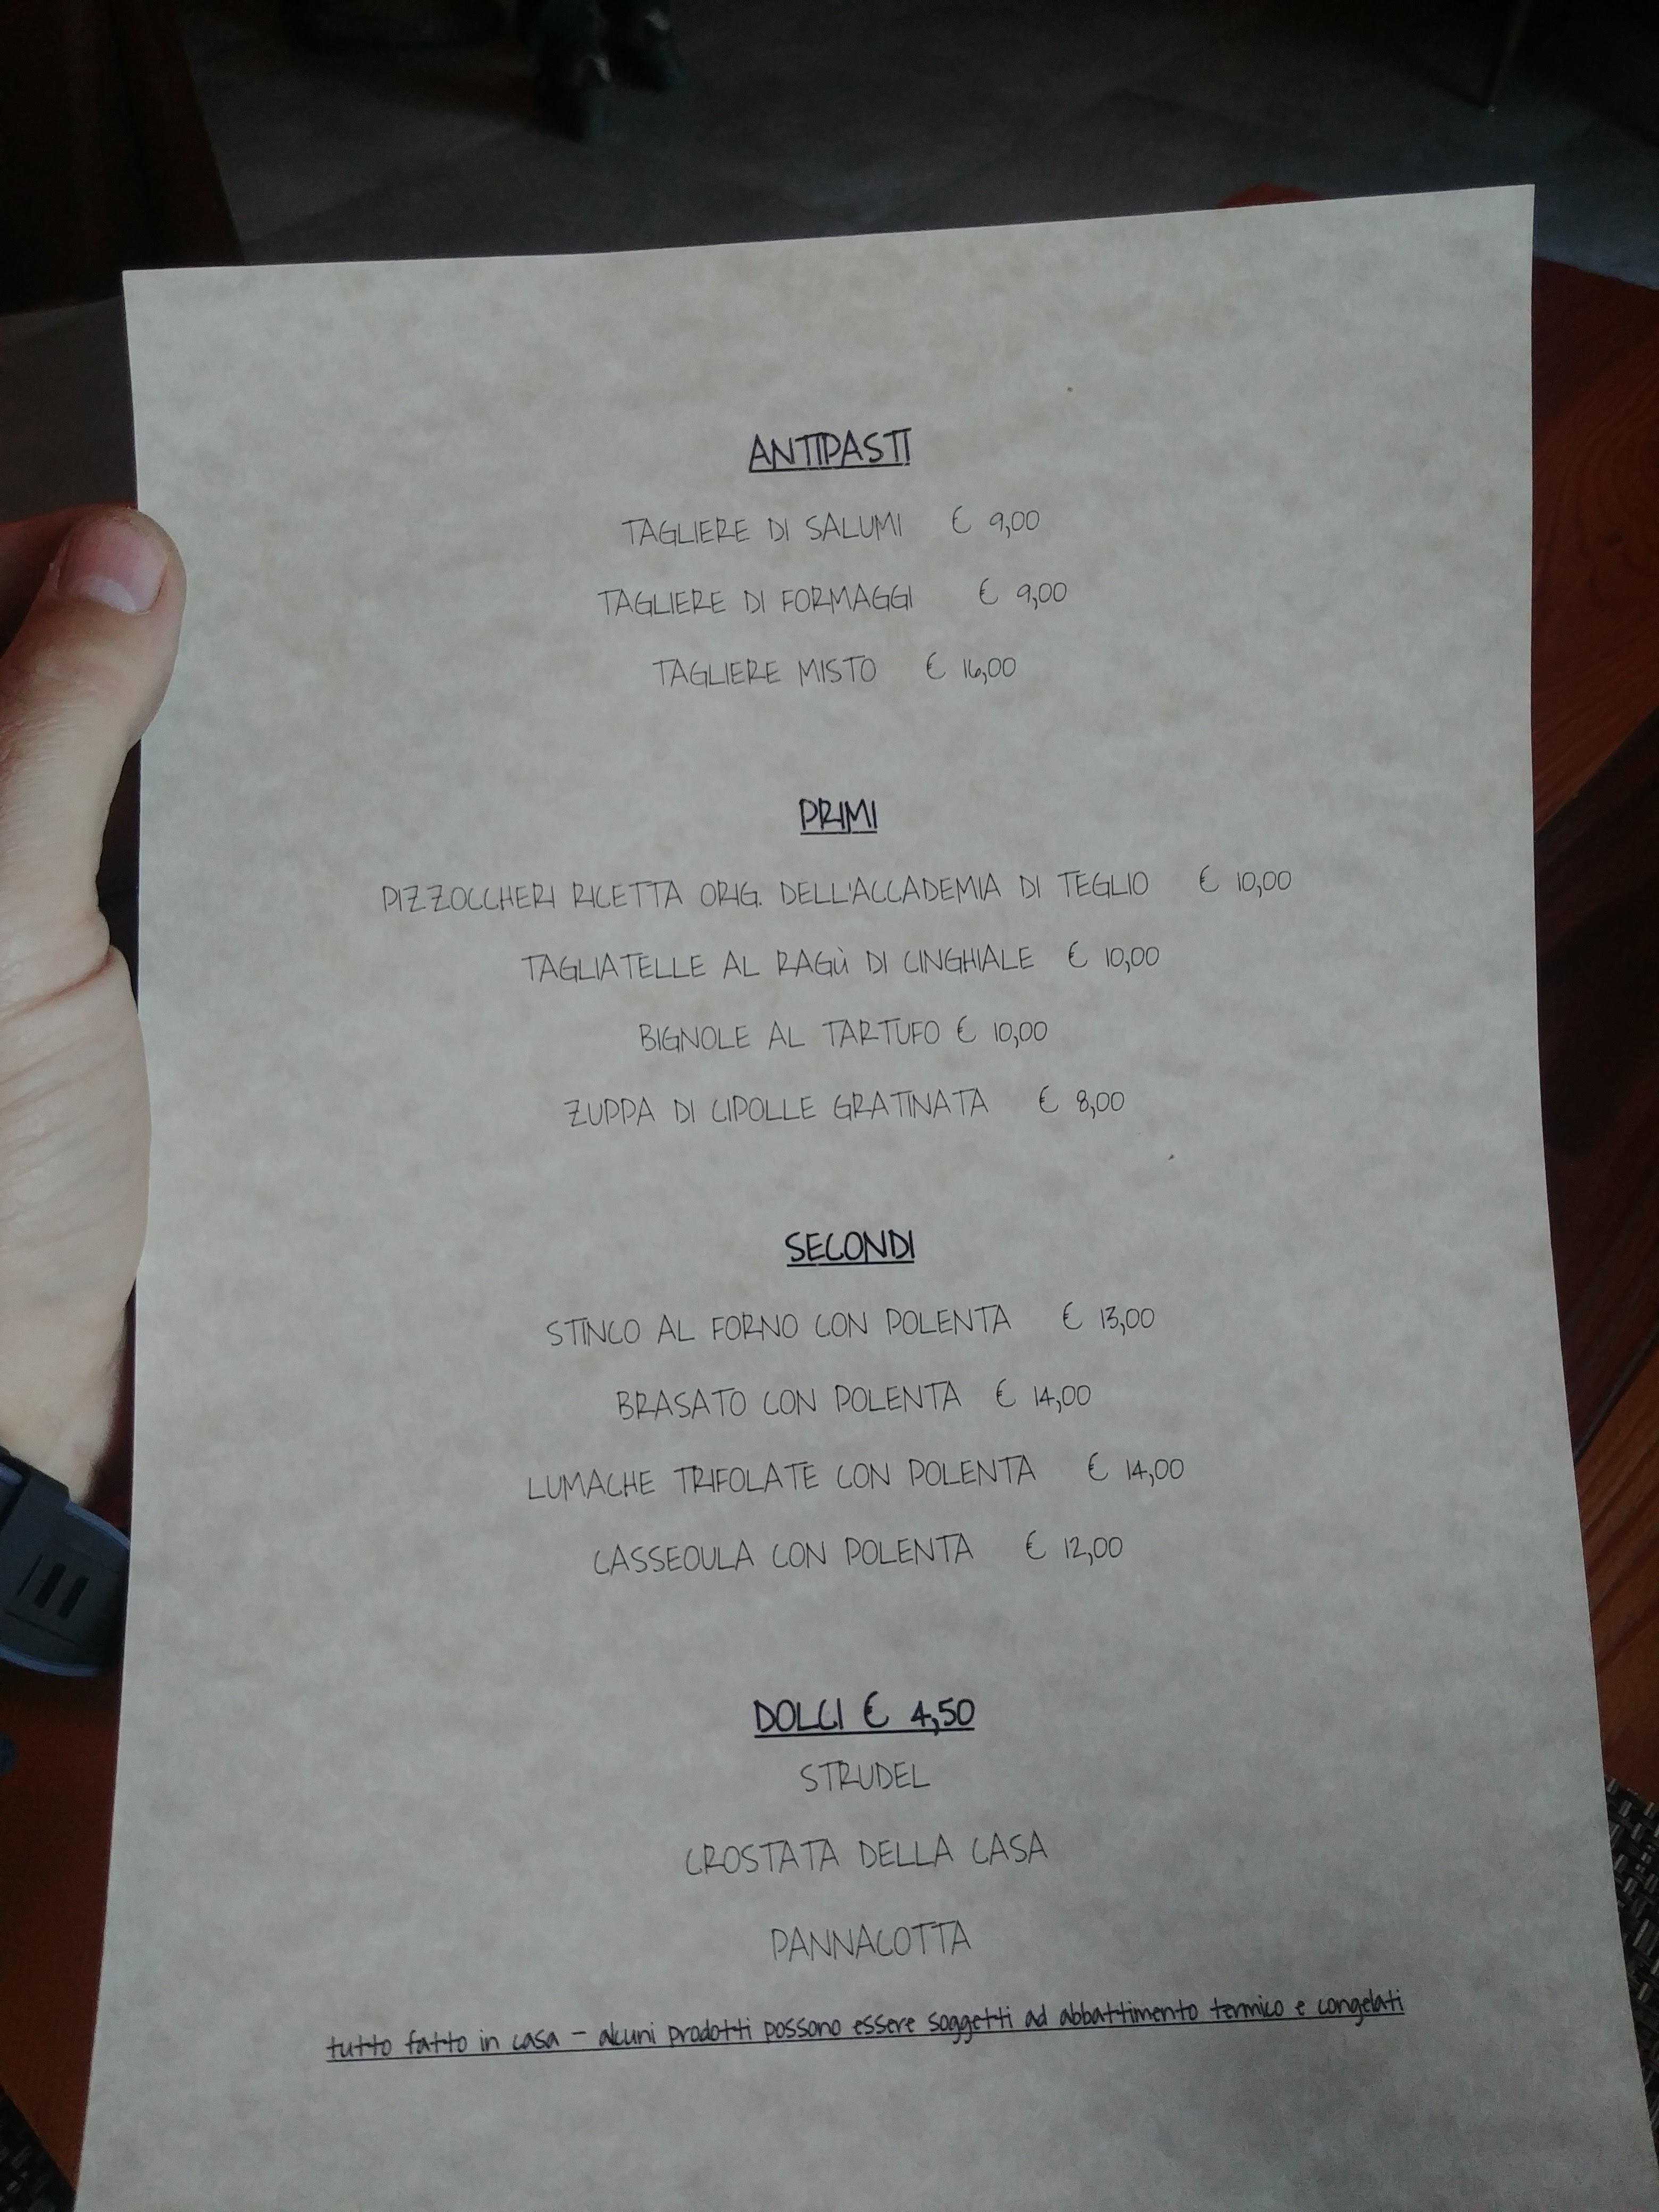 ANTIPASTI
TAGLIERE DI SALUMI € 9,00
TAGLIERE DI FORMAGGI € 9,00
TAGLIERE MISTO € 16,00
PRIMI
PIZZOCCHERI RICETTA ORIG. DELL'ACCADEMIA DI TEGLIO € 10,00
TAGLIATELLE AL RAGÙ DI CINGHIALE € 10,00
BIGNOLE AL TARTUFO € 10,00
ZUPPA DI CIPOLLE GRATINATA € 8,00
SECONDI
STINCO AL FORNO CON POLENTA € 13,00
BRASATO CON POLENTA € 14,00
LUMACHE TRIFOLATE CON POLENTA € 14,00
CASSEOULA CON POLENTA € 12,00
DOLCI € 4,50
STRUDEL
CROSTATA DELLA CASA
PANNACOTTA
tutto fatto in casa - alcuni prodotti possono essere soggetti ad abbattimento termico e congelati